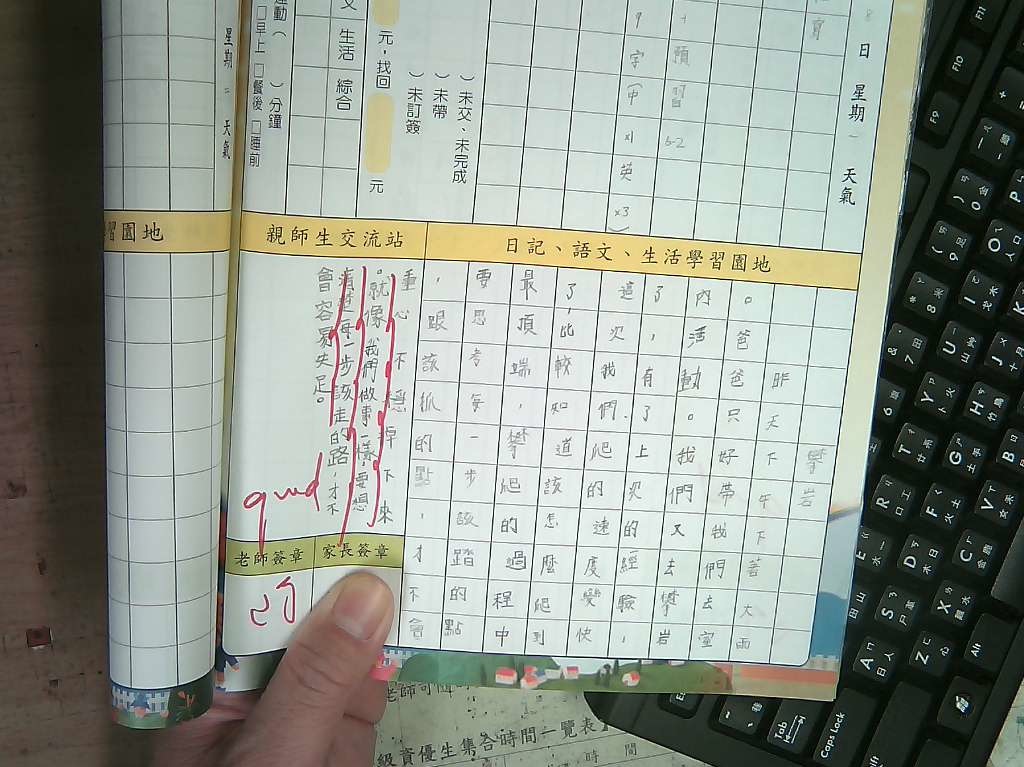 日 星期一 天氣
寶
預習6-2
9字(中x1英x3)
)未交、未完成
)未帶
)未訂簽
元,找回 元
文 生活 綜合
運動( )分鐘
□早上 □餐後 □睡前
星期二 天氣
習園地
親師生交流站
日記、語文、生活學習園地
攀岩
昨天下午下著大雨
。爸爸只好帶我們去室
內活動。我們又去攀岩
了,有了上次的經驗,
這次我們爬的速度變快
了,比較知道該怎麼爬到
最頂端,攀爬的過程中
要思考每一步該踏的點
,跟該抓的點,才不會
重心不穩掉下來
。就像我們做事一樣,要想
清楚每一步該走的路,才不
會容易失足。
good
老師簽章 家長簽章
老師可隨
級資優生集合時間一覽表】
時間
F11
F10
F9
Tab
Caps Lock
Alt